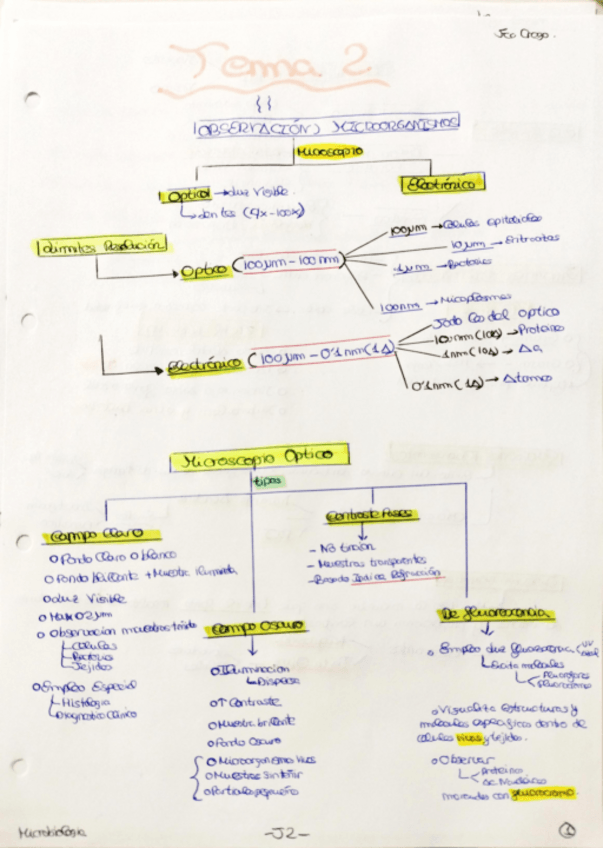 Tema 2
OBSERVACIÓN MICROORGANISMOS
Microscopio
Optico → Luz Visible.
Lentes (4x-100x)
Electrónico
Limites Resolución
Optico (100µm - 100nm)
100µm → Células epiteliales
10µm → Eritrocitos
1µm → Bacterias
100nm → Micoplasmas
Electrónico (100µm - 0'1nm (1Å)
Todo lo del optico
→ Proteinas
1nm (10Å) → Aa
0'1nm (1Å) → Átomo
Microscopio Optico
tipos
Campo Claro
o Fondo Claro o blanco
o Fondo Brillante + Muestra iluminada
o Luz Visible
o Max 0'2µm
o Observacion muestras teñida
Células
Bacterias
Tejidos
o Empleo Especial
Histologia
Diagnostico Clinico
Campo Oscuro
o Iluminacion
Dispersa
o ↑ Contraste
o Muestra brillante
o Fondo Oscuro
o Microorganismos Vivos
o Muestras Sin teñir
o Particulas pequeñas
Contraste Fases
- No tincion
- Muestras transparentes
- Indice Refracción
De fluorescencia
o Emplea luz fluorescencia UV
Excita moleculas
Fluoroforos
Fluorocromo
o Visualiza estructuras y
moleculas especificas dentro de
células vivas y tejidos.
o Observar
Proteinas
Ac. Nucleicos
marcados con fluorocromo.
Microbiología
-J2-
1